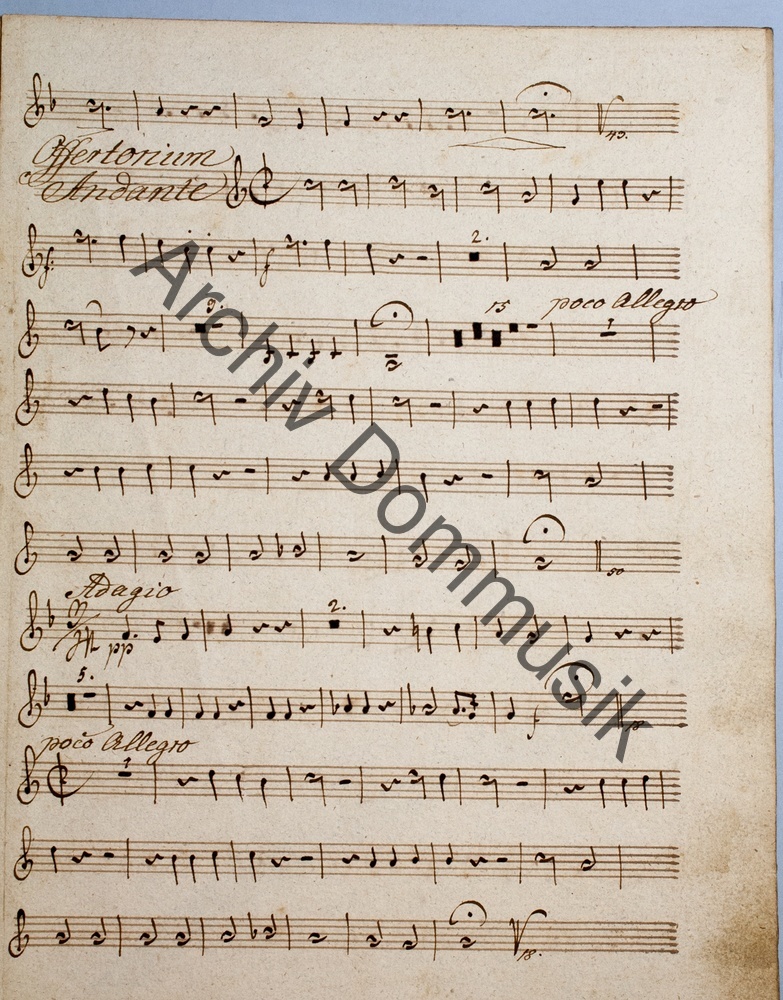 43.
Offertorium
Andante
f.
f
2.
9.
15
poco Allegro
1
50
Adagio
pp
2.
5.
f
p
poco Allegro
1
18.
Archiv Dommusik